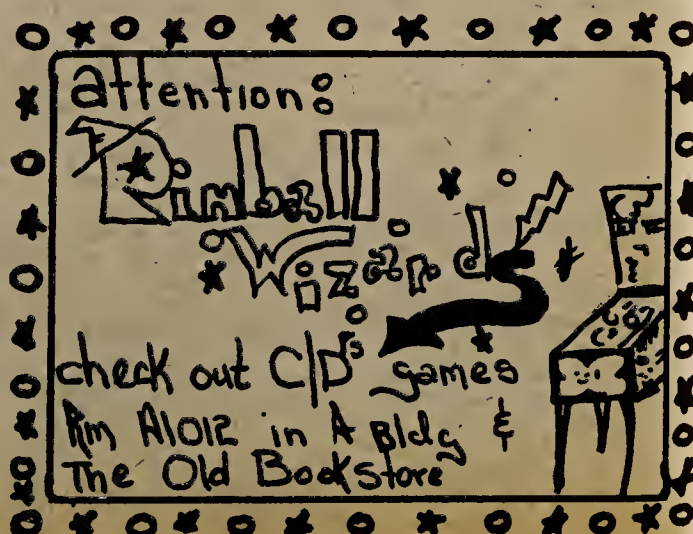 attention:
Pinball
Wizard
check out C/D's games
Rm A1012 in A Bldg &
The Old Bookstore